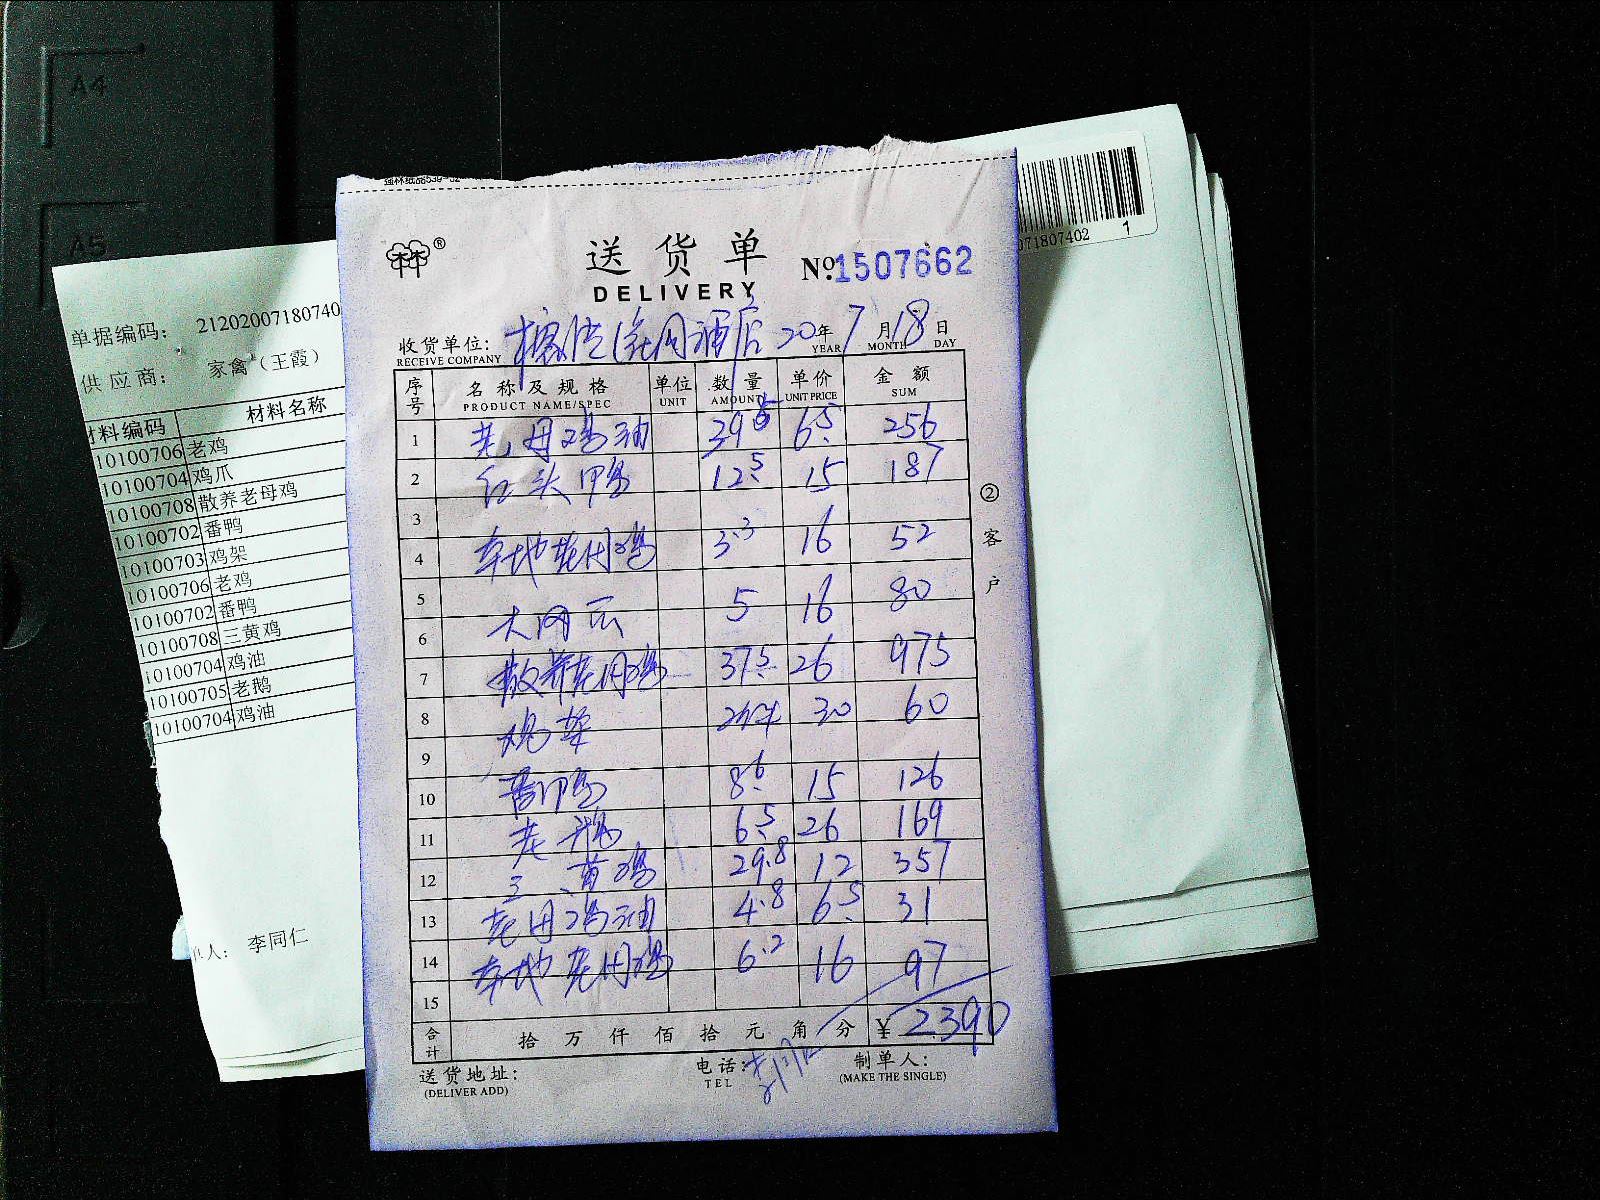 A4
A5
071807402 1
单据编码: 2120200718074
供应商: 家禽（王霞）
材料编码 材料名称
10100706 老鸡
10100704 鸡爪
10100708 散养老母鸡
10100702 番鸭
10100703 鸡架
10100706 老鸡
10100702 番鸭
10100708 三黄鸡
10100704 鸡油
10100705 老鹅
10100704 鸡油
单人: 李同仁
®
送货单
DELIVERY
№1507662
收货单位: 酒店 20年 7月 18日
RECEIVE COMPANY YEAR MONTH DAY
序号 名称及规格 单位 数量 单价 金额
PRODUCT NAME/SPEC UNIT AMOUNT UNIT PRICE SUM
1 老母鸡油 39.5 6.5 256
2 红头鸭 12.5 15 187
3
4 本地老母鸡 3.3 16 52
5 5 16 80
6
7 散养老母鸡 37.5 26 975
8 30 60
9
10 番鸭 8.6 15 126
11 老鹅 6.5 26 169
12 三黄鸡 29.8 12 357
13 老母鸡油 4.8 6.5 31
14 本地老母鸡 6.2 16 97
15
合计 拾万仟佰拾元角分 ¥ 2390
送货地址: 电话: 制单人:
(DELIVER ADD) TEL (MAKE THE SINGLE)
②客户